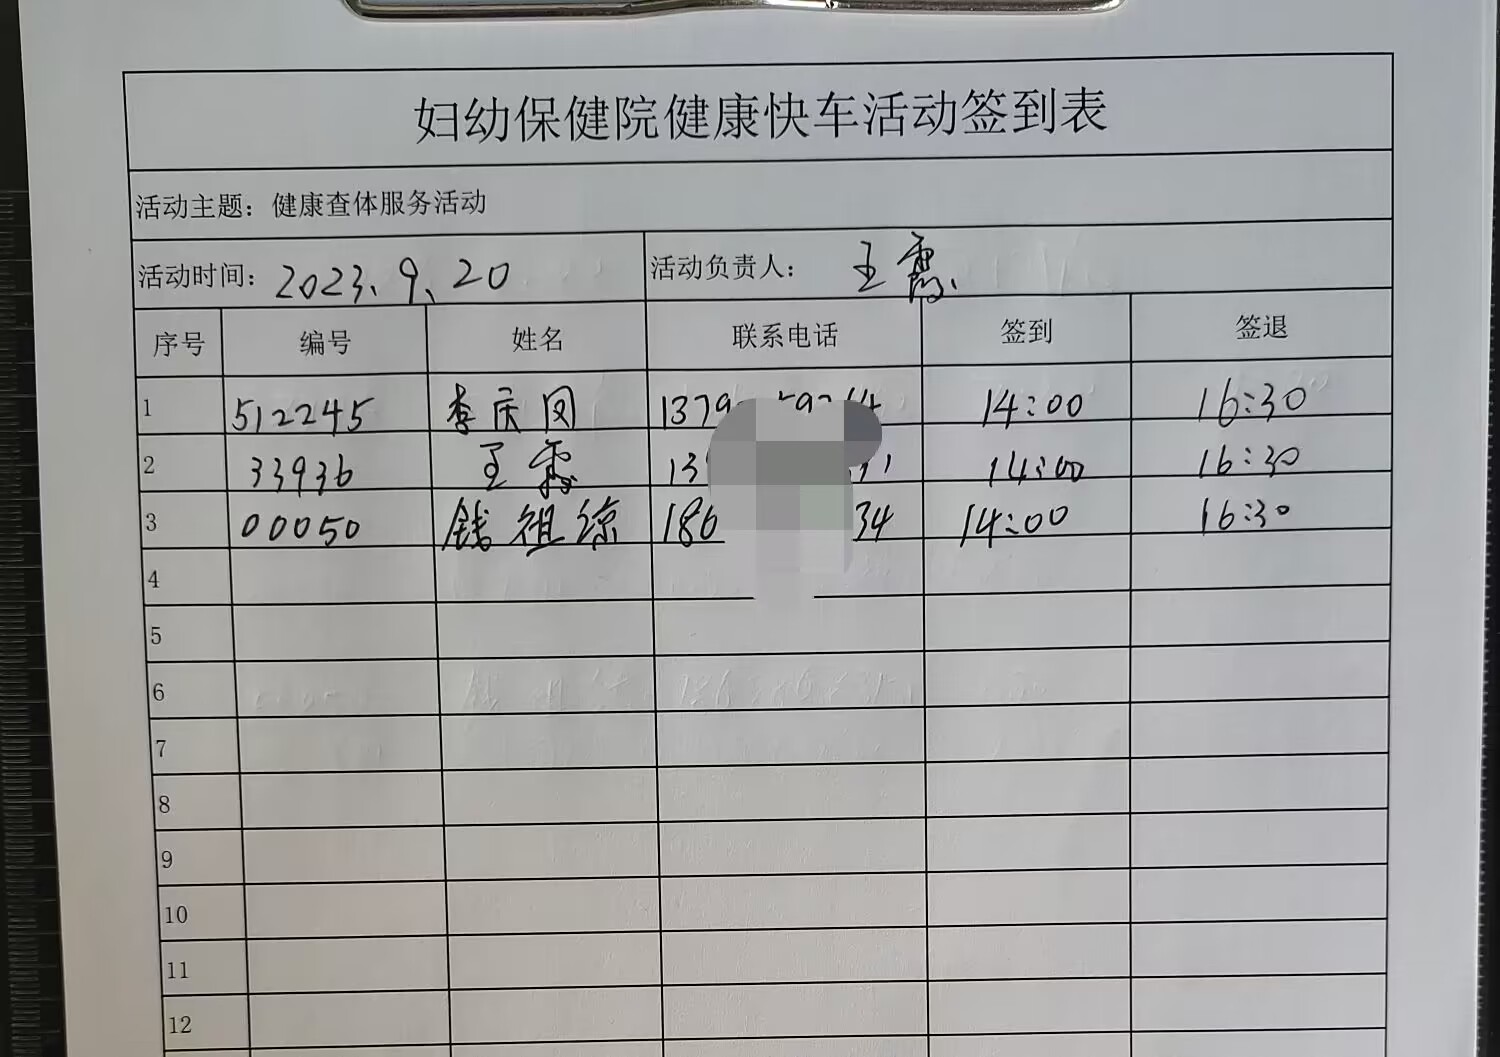 妇幼保健院健康快车活动签到表
活动主题：健康查体服务活动
活动时间：2023、9、20 活动负责人：王霞
序号 编号 姓名 联系电话 签到 签退
1 512245 李庆凤 1379 14:00 16:30
2 33936 王霞 13 14:00 16:30
3 00050 钱祖琼 186 34 14:00 16:30
4
5
6
7
8
9
10
11
12